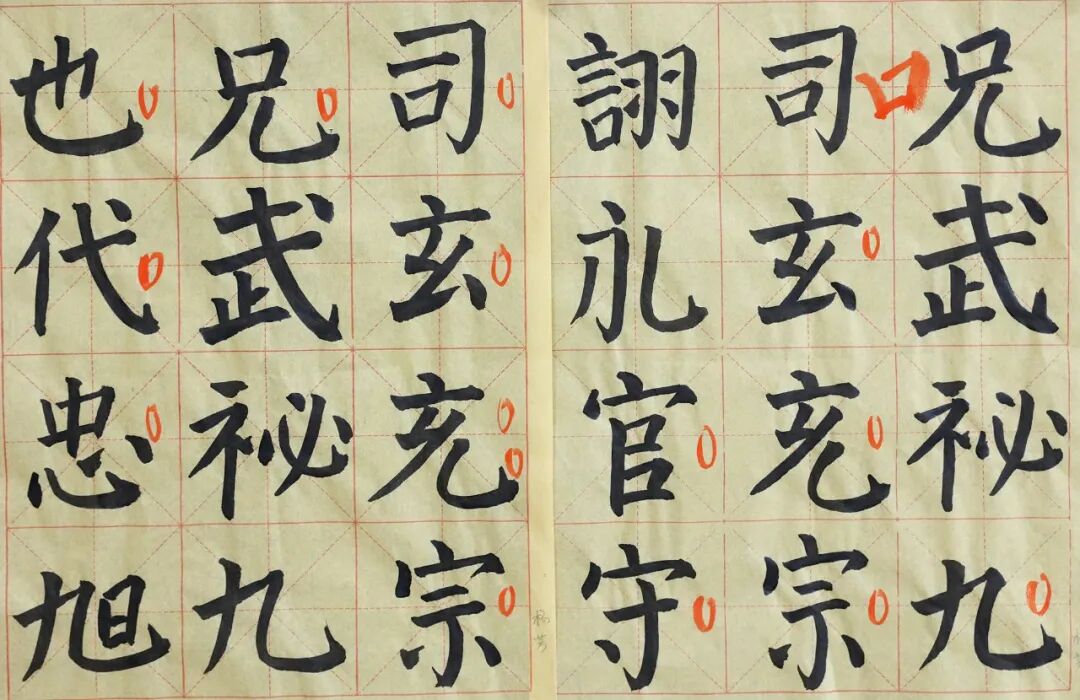 兄武祕九
司玄充宗
詡官守
司玄充宗
兄武祕九
也代忠旭